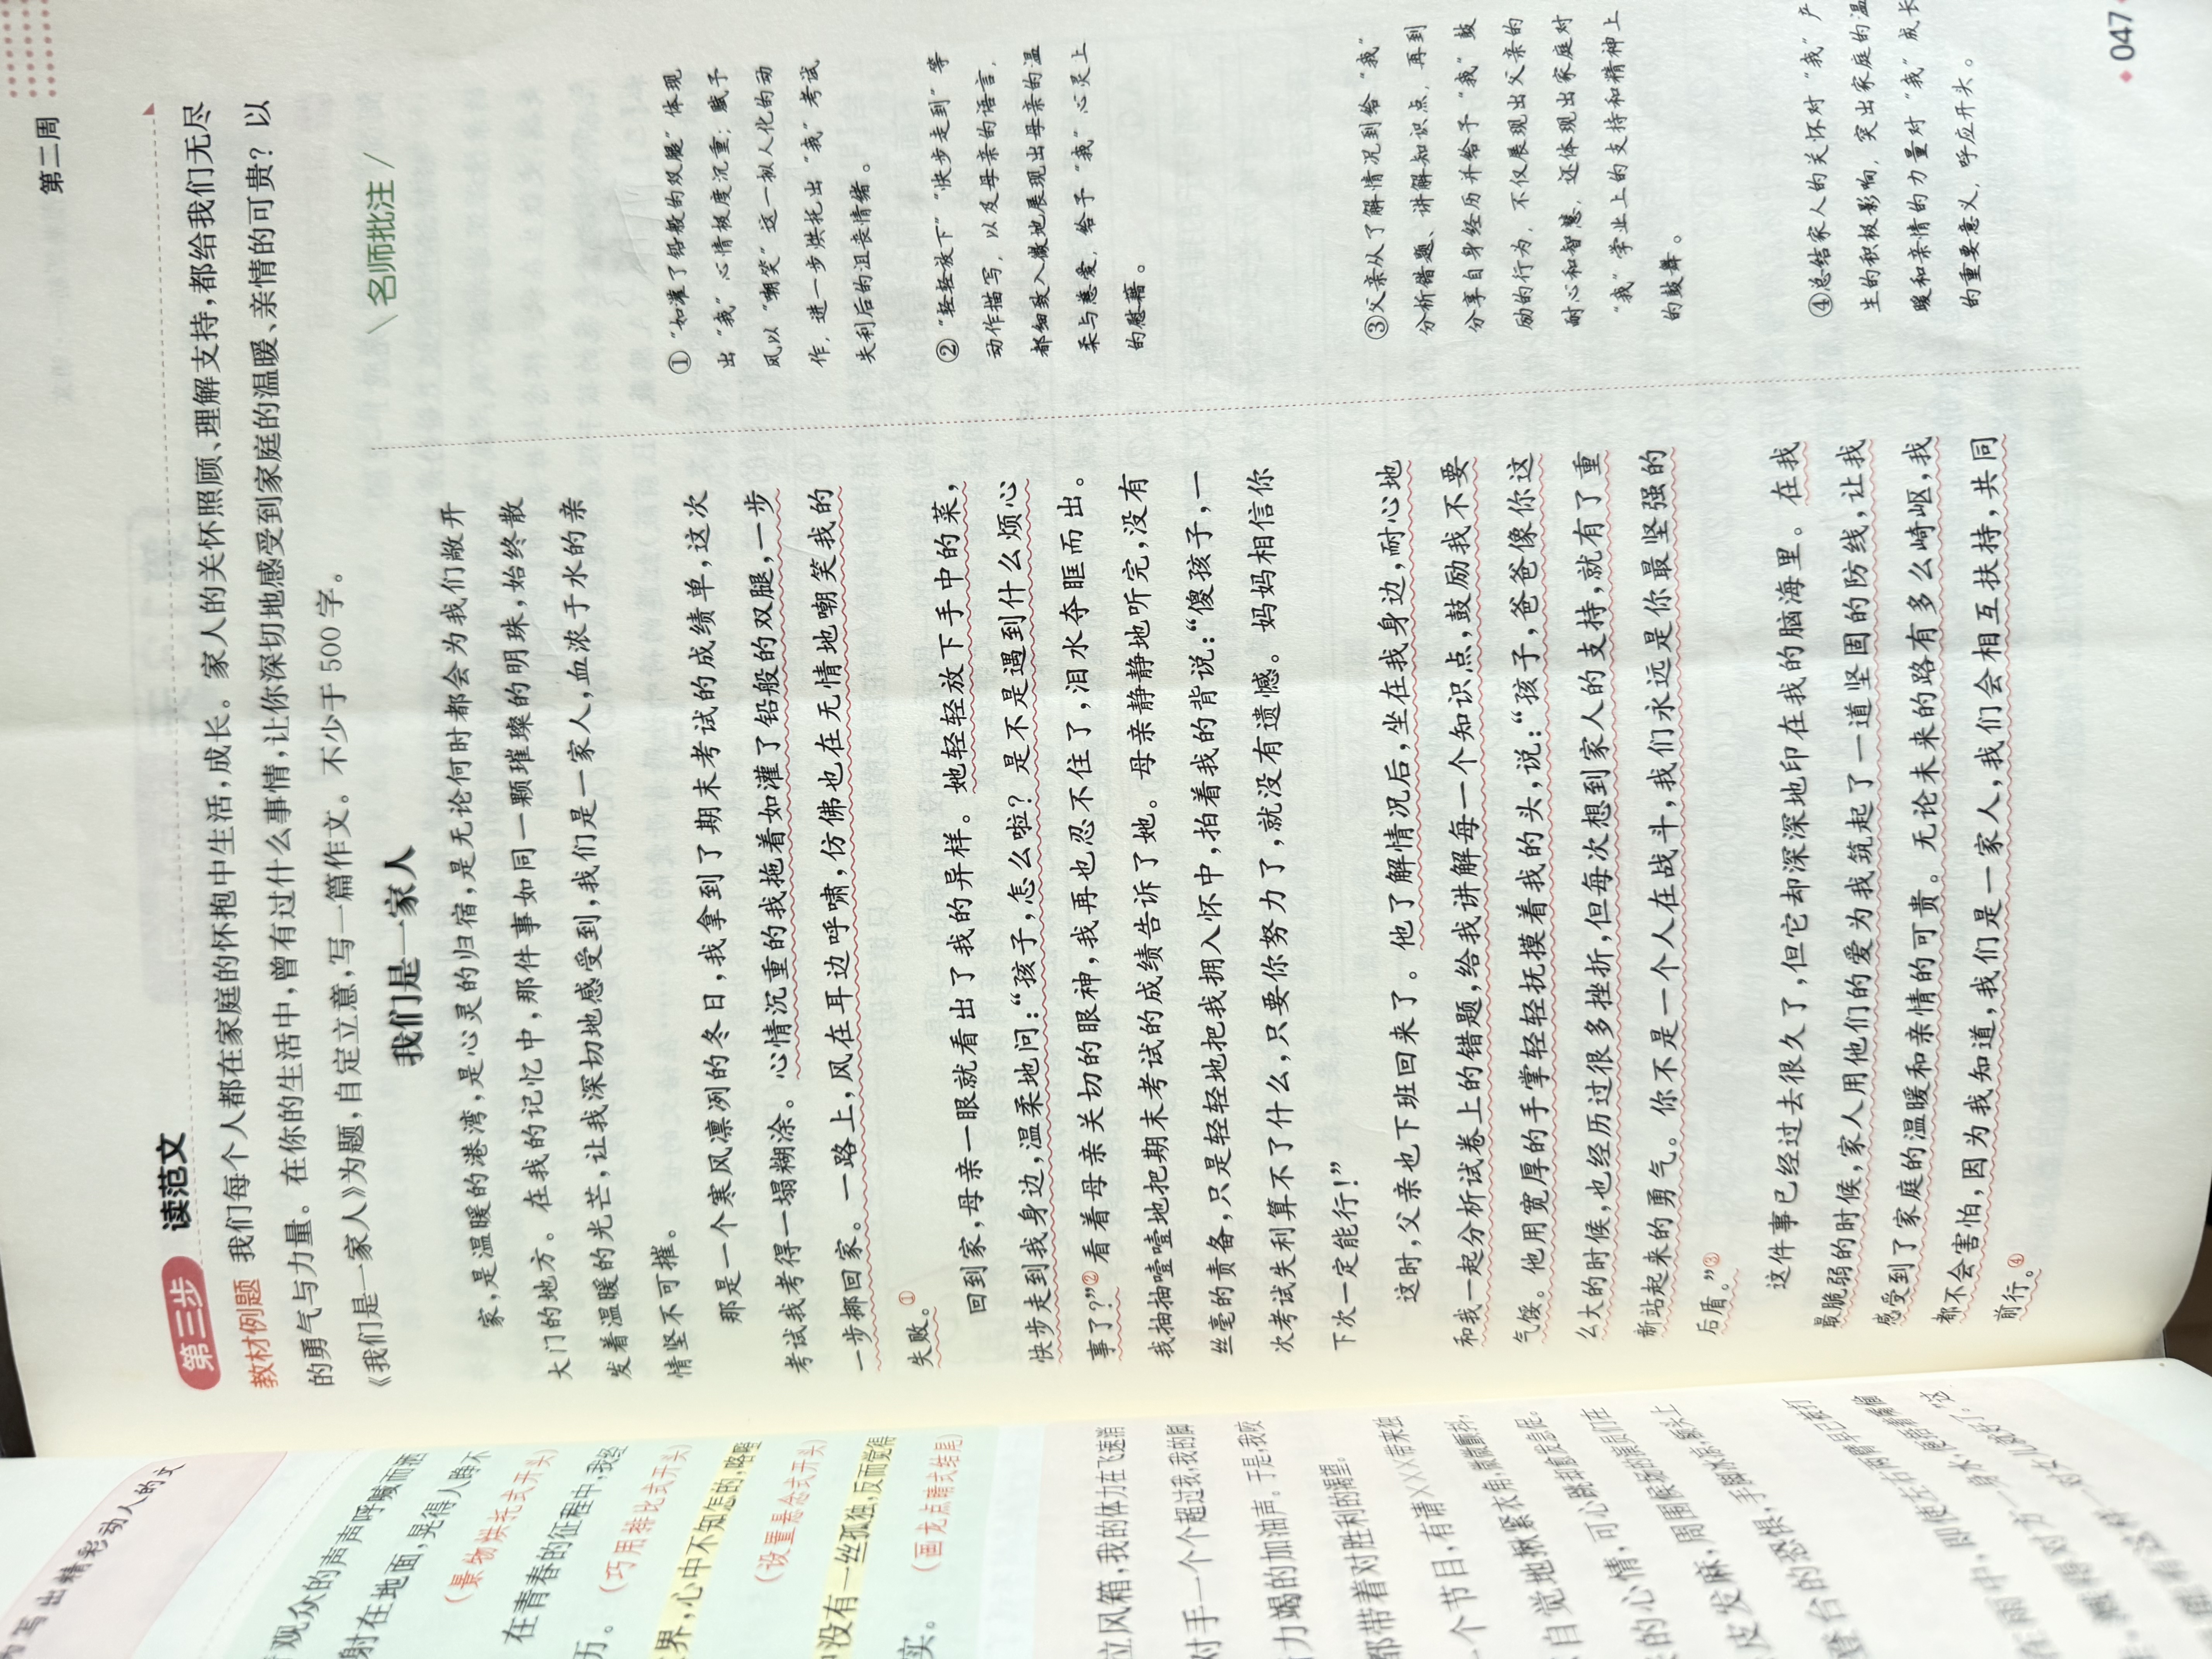 第二周
第三步 读范文
教材例题 我们每个人都在家庭的怀抱中生活,成长。家人的关怀照顾、理解支持,都给我们无尽
的勇气与力量。在你的生活中,曾有过什么事情,让你深切地感受到家庭的温暖、亲情的可贵?以
《我们是一家人》为题,自定立意,写一篇作文。不少于500字。
我们是一家人
家,是温暖的港湾,是心灵的归宿,是无论何时都会为我们敞开
大门的地方。在我的记忆中,那件事如同一颗璀璨的明珠,始终散
发着温暖的光芒,让我深切地感受到,我们是一家人,血浓于水的亲
情坚不可摧。
那是一个寒风凛冽的冬日,我拿到了期末考试的成绩单,这次
考试我考得一塌糊涂。心情沉重的我拖着如灌了铅般的双腿,一步
一步挪回家。一路上,风在耳边呼啸,仿佛也在无情地嘲笑我的
失败。①
回到家,母亲一眼就看出了我的异样。她轻轻放下手中的菜,
快步走到我身边,温柔地问:“孩子,怎么啦?是不是遇到什么烦心
事了?”②看着母亲关切的眼神,我再也忍不住了,泪水夺眶而出。
我抽抽噎噎地把期末考试的成绩告诉了她。母亲静静地听完,没有
丝毫的责备,只是轻轻地把我拥入怀中,拍着我的背说:“傻孩子,一
次考试失利算不了什么,只要你努力了,就没有遗憾。妈妈相信你
下次一定能行!”
这时,父亲也下班回来了。他了解情况后,坐在我身边,耐心地
和我一起分析试卷上的错题,给我讲解每一个知识点,鼓励我不要
气馁。他用宽厚的手掌轻轻抚摸着我的头,说:“孩子,爸爸像你这
么大的时候,也经历过很多挫折,但每次想到家人的支持,就有了重
新站起来的勇气。你不是一个人在战斗,我们永远是你最坚强的
后盾。”③
这件事已经过去很久了,但它却深深地印在我的脑海里。在我
最脆弱的时候,家人用他们的爱为我筑起了一道坚固的防线,让我
感受到了家庭的温暖和亲情的可贵。无论未来的路有多么崎岖,我
都不会害怕,因为我知道,我们是一家人,我们会相互扶持,共同
前行。④
\名师批注/
①“如灌了铅般的双腿”体现
出“我”心情极度沉重;赋予
风以“嘲笑”这一拟人化的动
作,进一步烘托出“我”考试
失利后的沮丧情绪。
②“轻轻放下”“快步走到”等
动作描写,以及母亲的语言,
都细致入微地展现出母亲的温
柔与慈爱,给予“我”心灵上
的慰藉。
③父亲从了解情况到给“我”
分析错题、讲解知识点,再到
分享自身经历并给予“我”鼓
励的行为,不仅展现出父亲的
耐心和智慧,还体现出家庭对
“我”学业上的支持和精神上
的鼓舞。
④总结家人的关怀对“我”产
生的积极影响,突出家庭的温
暖和亲情的力量对“我”成长
的重要意义,呼应开头。
047
写出精彩动人的文
观众的声声呼喊而洒
射在地面,晃得人睁不
(景物烘托式开头)
在青春的征程中,我经
历。(巧用排比式开头)
界,心中不知怎的,略略
(设置悬念式开头)
没有一丝孤独,反而觉得
实。(画龙点睛式结尾)
立风箱,我的体力在飞速消
对手一个个超过我,我的脚
力竭的加油声。于是,我咬
都带着对胜利的渴望。
一个节目,有请×××带来独
自觉地揪紧衣角,微微颤抖,
的心情,可心跳却愈发急促。
皮发麻,周围候场的演员们在
登台的恐惧,手脚冰